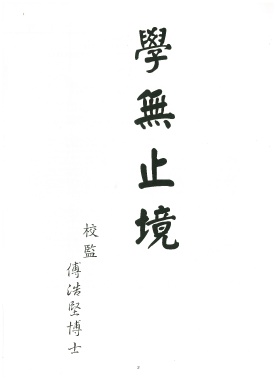 學無止境
校監
傅浩堅博士